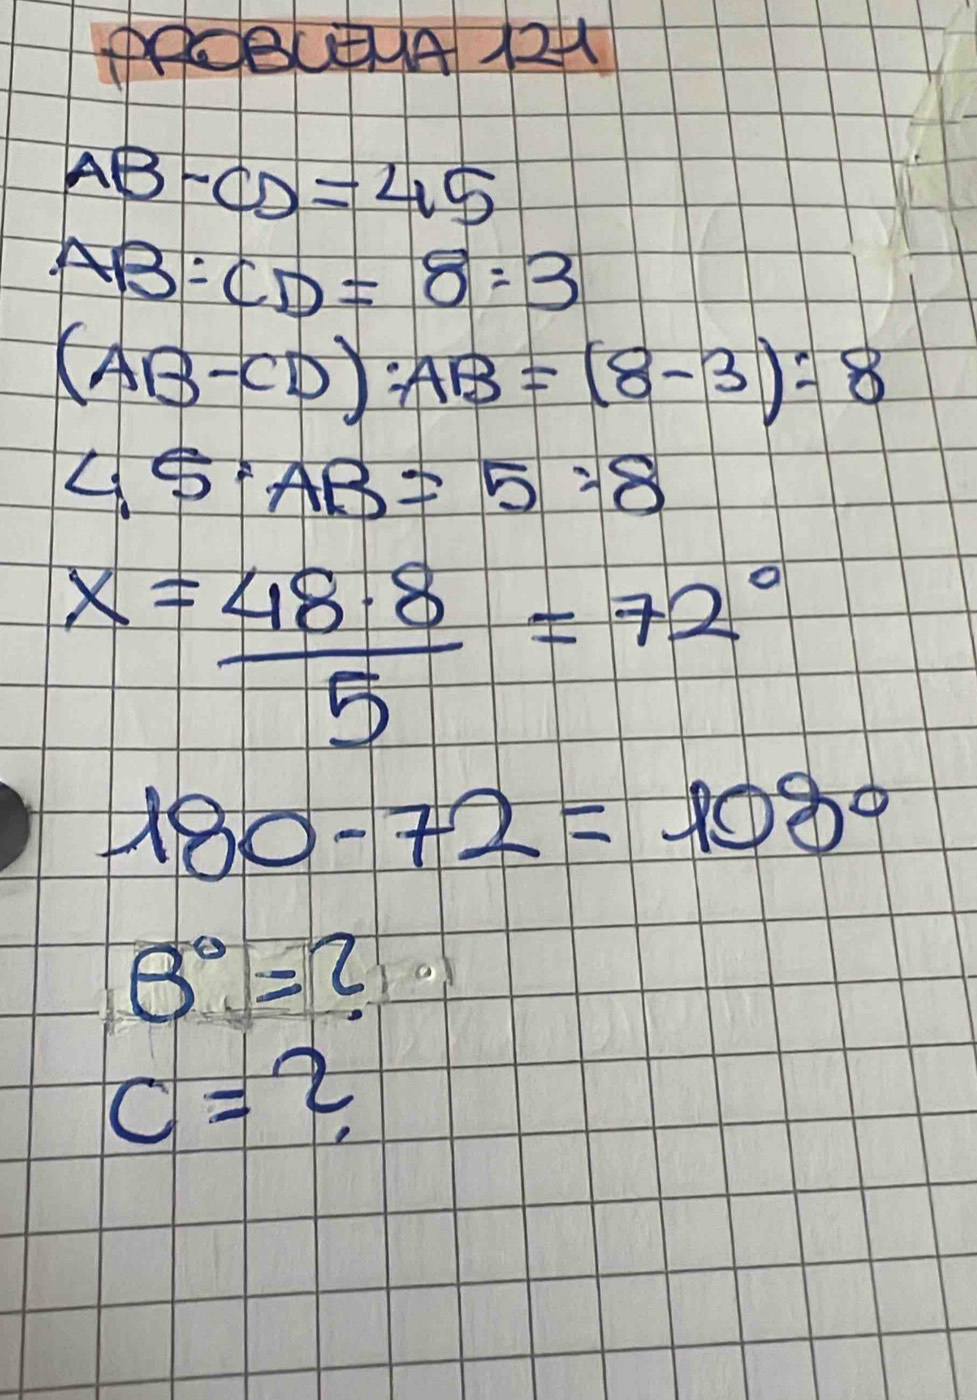 PROBLEMA 121
AB-CD=45
AB:CD= 8:3
(AB-CD):AB=(8-3):8
45:AB= 5:8
X = 48·8 / 5 = 72°
180-72= 108°
B°=?
C=?